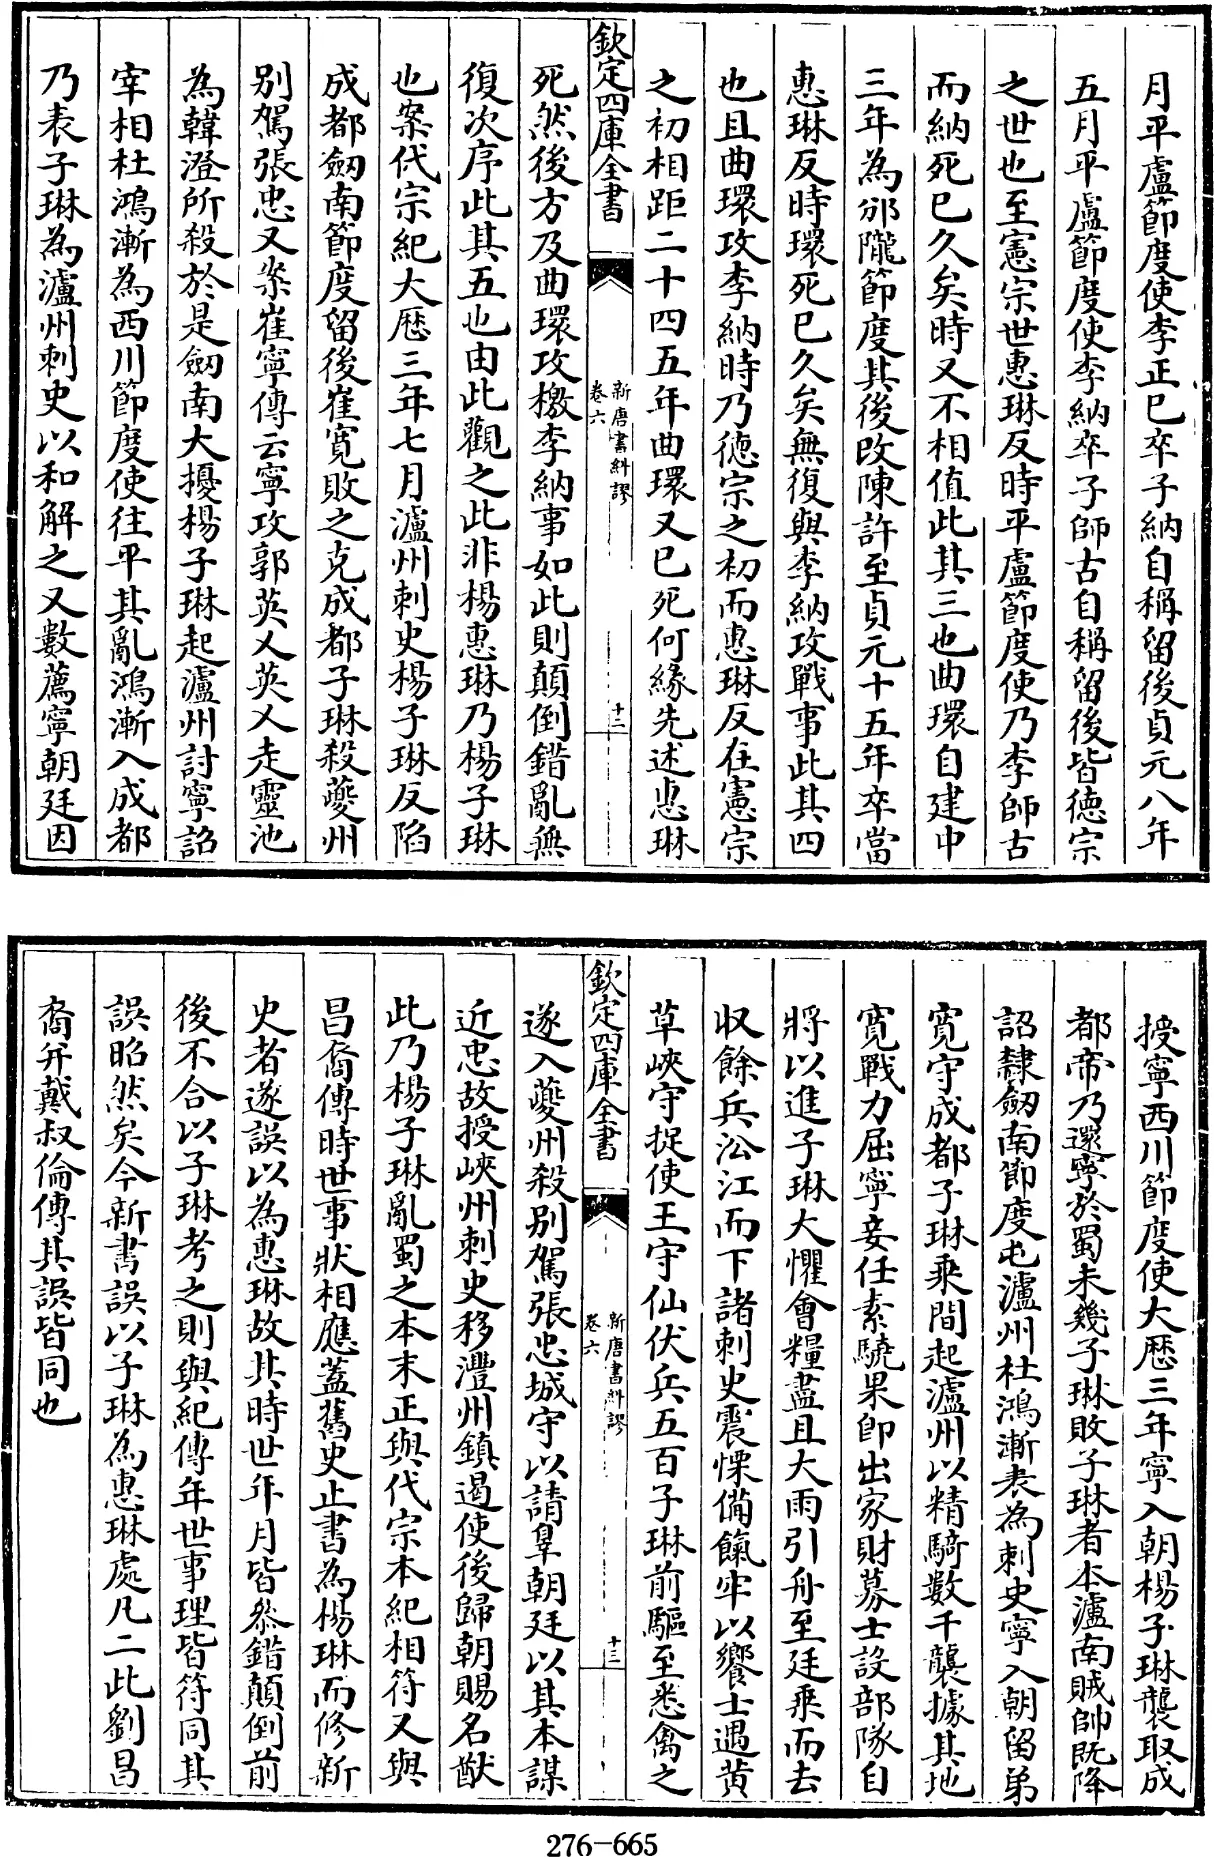 月平盧節度使李正已卒子納自稱留後貞元八年
五月平盧節度使李納卒子師古自稱留後皆徳宗
之世也至憲宗世惠琳反時平盧節度使乃李師古
而納死已久矣時又不相值此其三也曲環自建中
三年為邠隴節度其後改陳許至貞元十五年卒當
惠琳反時環死已久矣無復與李納攻戰事此其四
也且曲環攻李納時乃徳宗之初而惠琳反在憲宗
之初相距二十四五年曲環又已死何緣先述惠琳
欽定四庫全書
新唐書糾謬
卷六
十二
死然後方及曲環攻檄李納事如此則顛倒錯亂無
復次序此其五也由此觀之此非楊惠琳乃楊子琳
也案代宗紀大厯三年七月瀘州刺史楊子琳反陷
成都劒南節度留後崔寛敗之克成都子琳殺夔州
别駕張忠又案崔寧傳云寧攻郭英乂英乂走靈池
為韓澄所殺於是劒南大擾楊子琳起瀘州討寧詔
宰相杜鴻漸為西川節度使往平其亂鴻漸入成都
乃表子琳為瀘州刺史以和解之又數薦寧朝廷因
授寧西川節度使大厯三年寧入朝楊子琳襲取成
都帝乃還寧於蜀未幾子琳敗子琳者本瀘南賊帥既降
詔隸劒南節度屯瀘州杜鴻漸表為刺史寧入朝留弟
寛守成都子琳乘間起瀘州以精騎數千襲據其地
寛戰力屈寧妾任素驍果即出家財募士設部隊自
將以進子琳大懼會糧盡且大雨引舟至廷乘而去
收餘兵沿江而下諸刺史震慄備餼牢以饗士過黄
草峽守捉使王守仙伏兵五百子琳前驅至悉禽之
欽定四庫全書
新唐書糾謬
卷六
十三
遂入夔州殺别駕張忠城守以請辠朝廷以其本謀
近忠故授峽州刺史移灃州鎮遏使後歸朝賜名猷
此乃楊子琳亂蜀之本末正與代宗本紀相符又與
昌裔傳時世事狀相應蓋舊史止書為楊琳而修新
史者遂誤以為惠琳故其時世年月皆叅錯顛倒前
後不合以子琳考之則與紀傳年世事理皆符同其
誤昭然矣今新書誤以子琳為惠琳處凡二此劉昌
裔并戴叔倫傳其誤皆同也
276-665